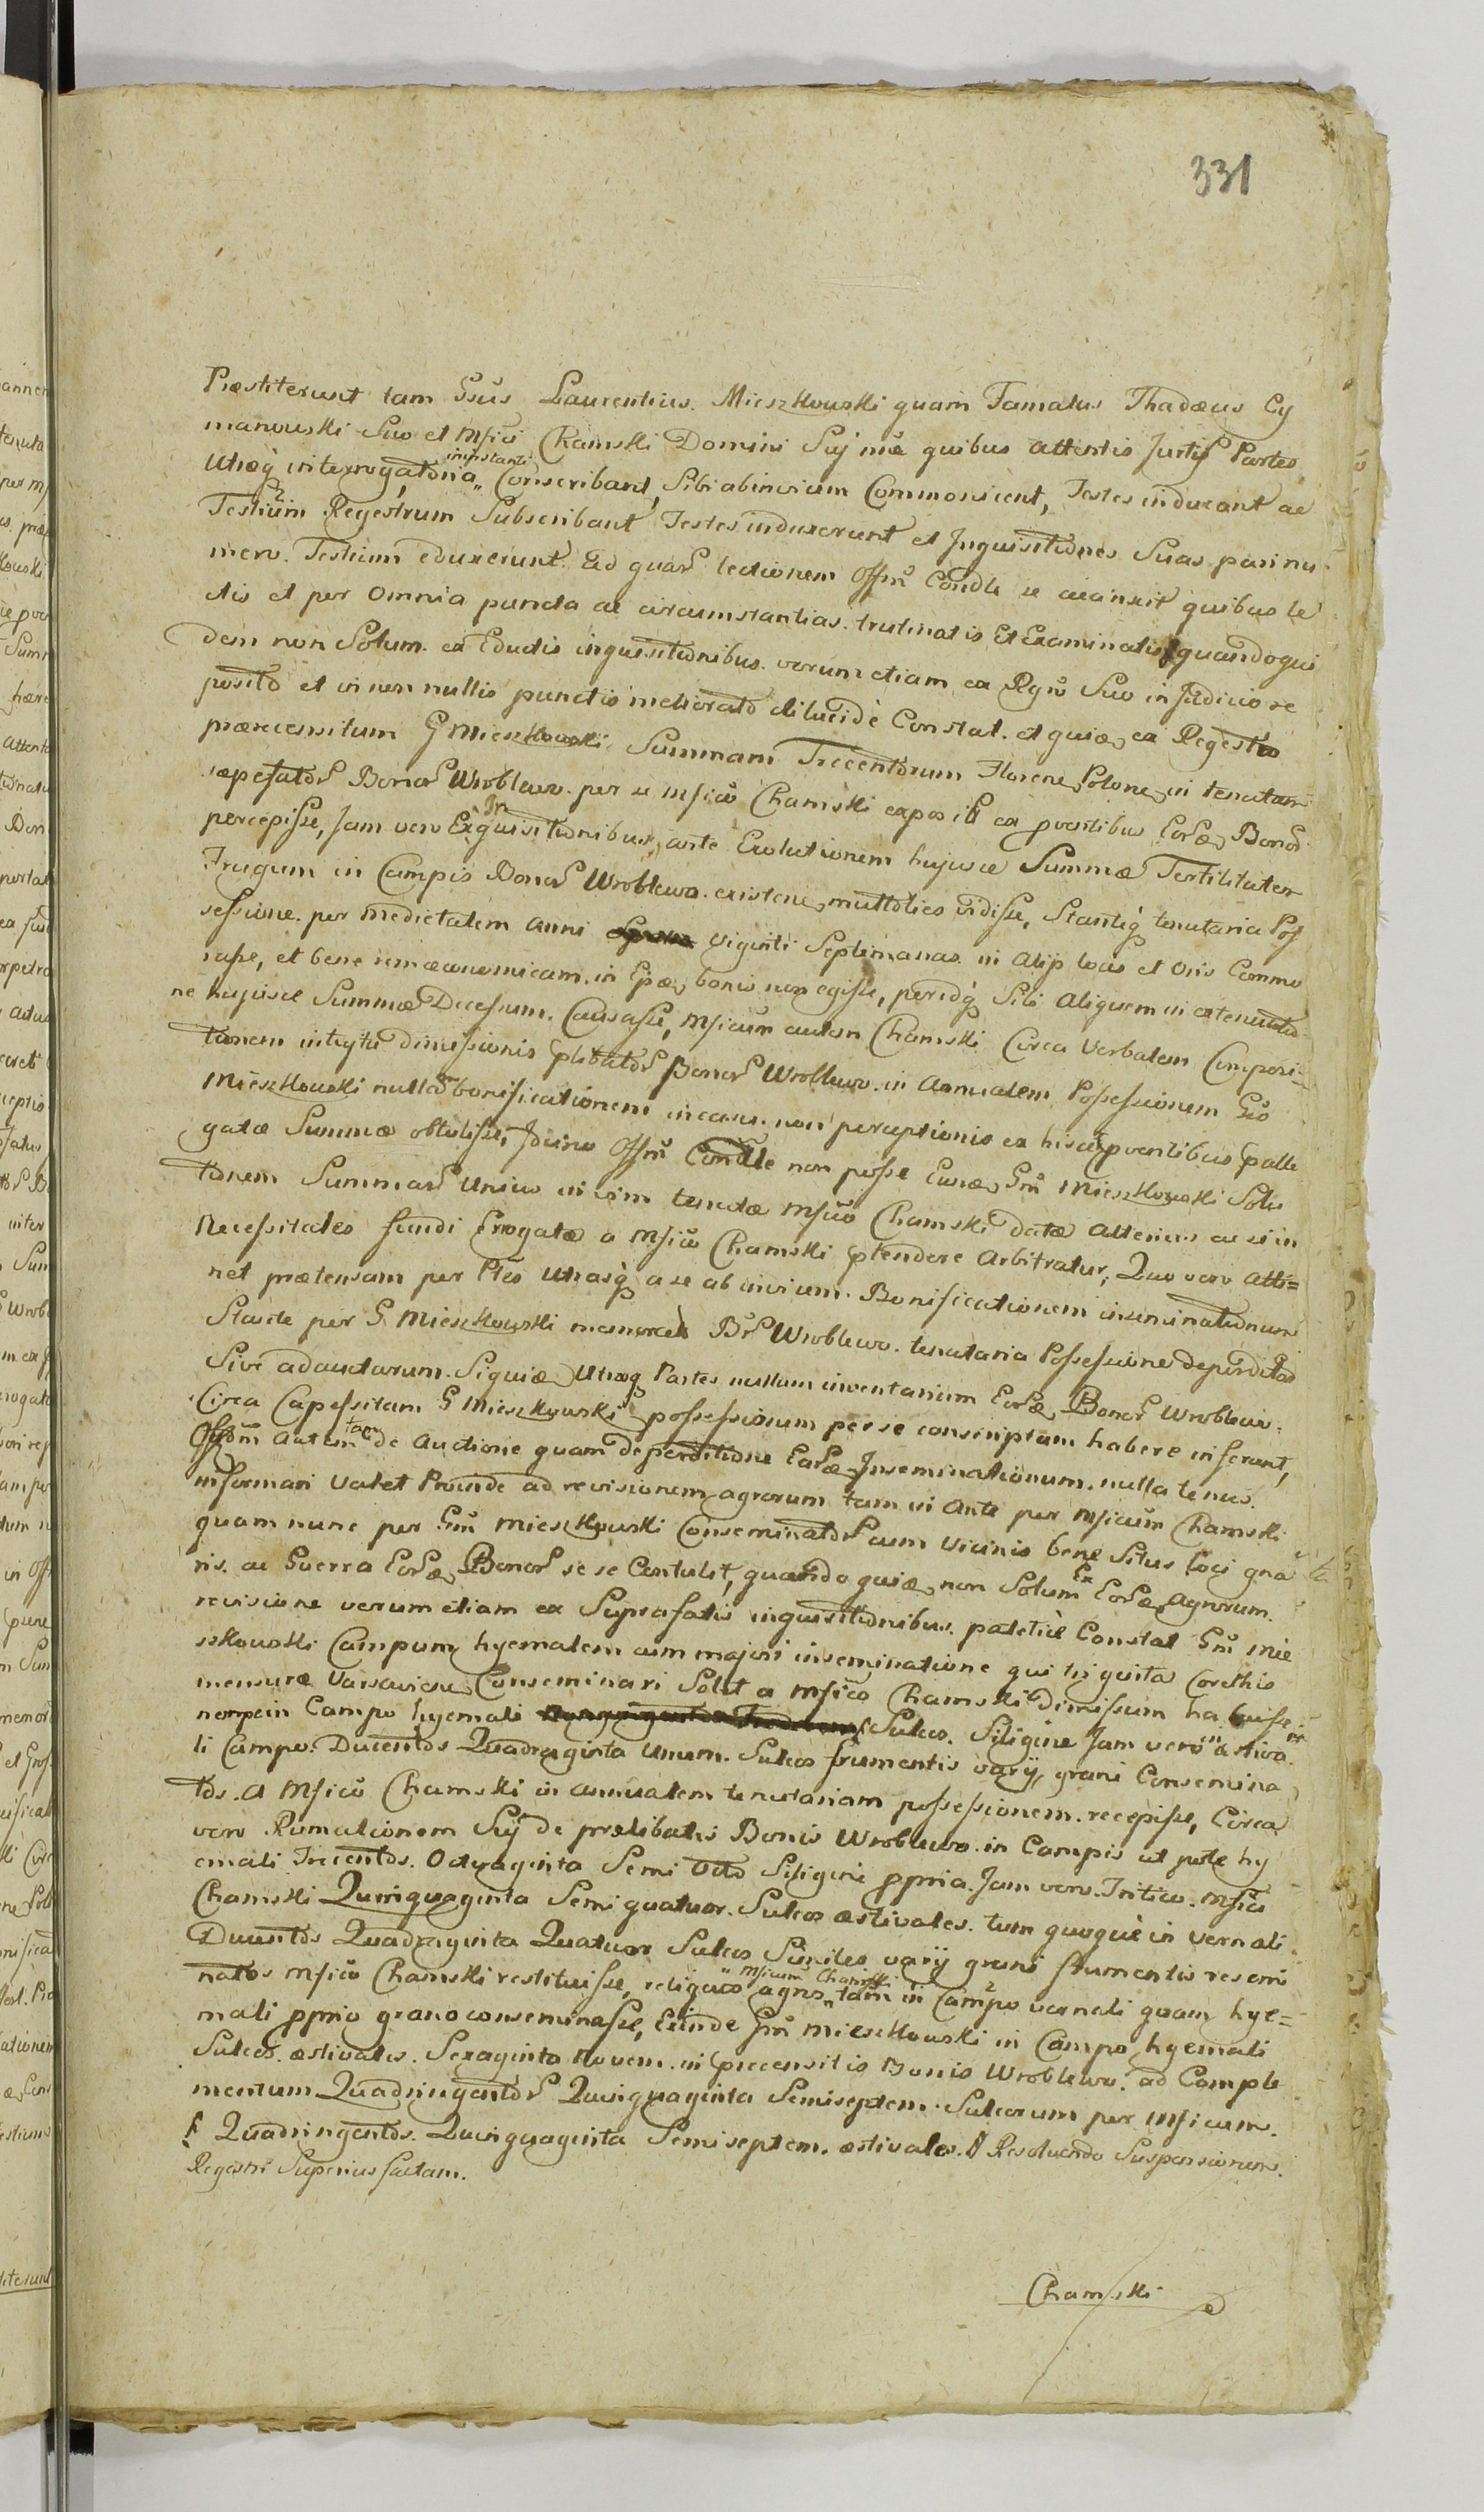 331
Præstiterunt tam Gsus Laurentius Mieszkowski quam Famatus Thadæus Cy
manowski Suo et Mfici Chamski Domini Sui nie quibus attentis Partes
Utræq interrogatoria in instanti Conscribant, Sibi abinvicem Commonicent, Testes inducant ac
Testium Regestrum Subscribant Testes induxerunt et Inquisitiones Suas pari nu
mero Testium eduxerunt. Ad quar lectionem Offm Condle se accinxit quibus le
ctis et per Omnia puncta ac circumstantias trutinatis Et Examinatis quandoqui
dem non Solum ex Eductis inquisitionibus verum etiam ex Rgro Suo in Judicio re
posito et in non nullis punctis meliorato dilucide Constat et quia ex Regestro
præcensitum G Mieszkowski Summam Trecentorum Florenor Polonor in tenutam
sæpefator Bonor Wroblewo per se Mfico Chamski exposit ex proventibus Eor Bonor
percepisse, Jam vero Ex In quisitionibus ante Evolutionem hujusce Summæ Fertilitatem
Frugum in Campis Bonor Wroblewo existen multoties vidisse, Stanteq tenutaria Pos
sessione per medietatem anni viginti Septimanas in Alijs locis et Oris Commo
rasse, et bene rem æconomicam in bonis non egisse, peridq Sibi Aliquem in extenuatio
ne hujusce Summæ Decessum Causasse, Mficum autem Chamski Circa Verbalem Composi
tionem intuitu dimissionis plibator Bonor Wroblewo in Annualem Possessionem Gso
Mieszkowski nullam bonificationem in casu non perceptionis ex hisce proventibus palle
gatæ Summæ obtulisse, Idcirco Offm Condle non posse Gsm Mieszkowski Solu
tionem Summar Unius in vim tenutæ Mfico Chamski datæ Alterius ac si in
Necessitates fundi Erogatæ a Mfico Chamski ptendere Arbitratur, Quo vero atti=
net prætensam per Ptes Utrasq a se ab invicem Bonificationem inseminationum
Stante per G Mieszkowski memorat Br Wroblewo tenutaria Possessione deperditar
Sive adauctarum Siquia Utræq Partes nullum inventarium Eor Bonor Wroblewo
Circa Capessitam G Mieszkowski possessionem per se conscriptum habere inferant,
Offm autem tam de Auctione quam deperditione Ear Inseminationum nulla tenus
informari Valet Proinde ad revisionem agrorum tam in Ante per Mficum Chamski
quam nunc per Gsm Mieszkowski Conseminator cum Vicinis bene Situs loci gna
ris ac Guerra Eor Bonor se se Contulit, quando quia non Solum Ex Eor Agrorum
revisione verum etiam ex Suprafatis inquisitionibus patetice Constat Gsm Mie
szkowski Campum hyemalem cum majori inseminatione qui triginta Corethis
mensuræ Varsavien Conseminari Solet a Mfico Chamski Dimissum habuisse
nempe in Campo hyemali Sulcos Siligine Jam vero in æstiva
li Campo Ducentos Quadraginta Unum Sulcos frumentis varij grani Consemina
tos a Mfico Chamski in annualem tenutariam possessionem recepisse, Circa
vero Rumationem Sui de prælibatis Bonis Wroblewo in Campis ut pote hy
emali Trecentos Octuaginta Semi Octo Siligine ppria Jam vero Tritico Mfici
Chamski Quinquaginta Semi quatuor Sulcos æstivales tum quoque in vernali
Ducentos Quadraginta Quatuor Sulcos Similes varij grani frumentis resemi
natos Mfico Chamski restituisse, reliquos Mficum Chamski agros tam in Campo vernali quam hye=
mali pprio grano conseminasse, Exinde Gsm Mieszkowski in Campo hyemali
Sulcos æstivales Sexaginta Novem in præcensitis Bonis Wroblewo ad Comple
mentum Quadringentor Quinquaginta Semiseptem Sulcorum per Mficum
Quadringentos Quinquaginta Semiseptem æstivales Resolvendo Suspensionem
Regestri Superius factam
Chamski